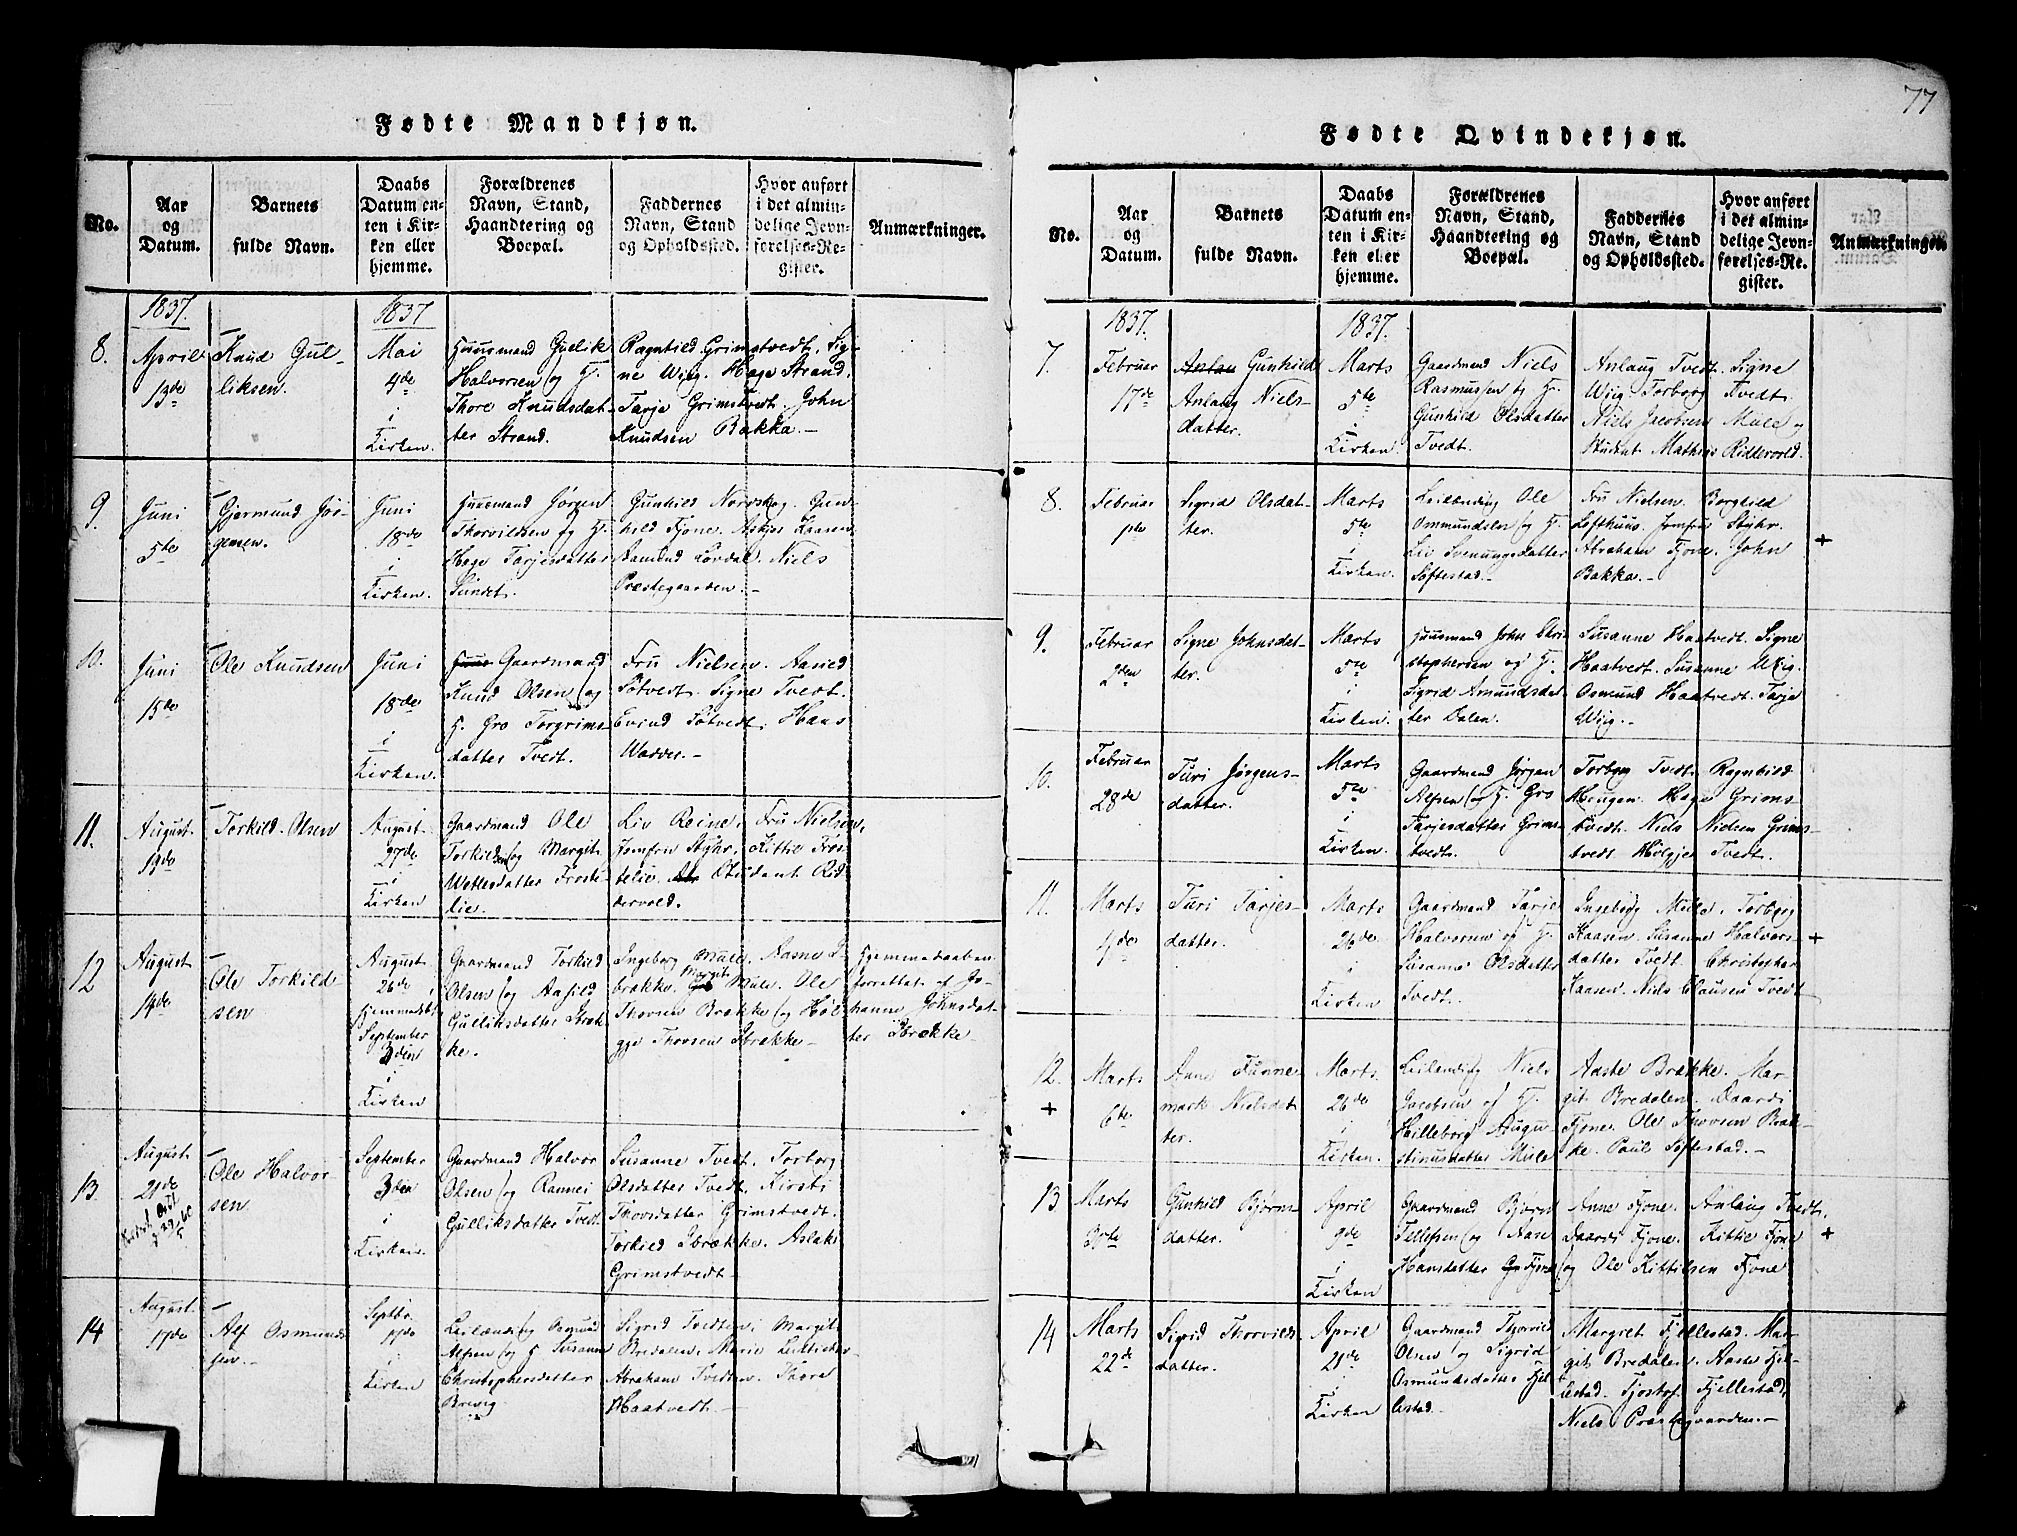 77
Fødte Mandkjøn.
No.
Aar
og
Datum.
Barnets
fulde Navn.
Daabs
Datum en-
ten i Kir-
ken eller
hjemme.
Forældrenes
Navn, Stand,
Haandtering og
Boepæl.
Faddernes
Navn, Stand
og Opholdssted.
Hvor anført
i det almin-
delige Jevn-
førelses-Re-
gister.
Anmærkninger.
8.
1837.
April
13de
Knud Gul-
liksen.
1837
Mai
4de
i
Kirken.
Huusmand Gullik
Halvorsen og H.
Thore Knudsdat-
ter Strand.
Ragnhild Grimstvedt. Sig-
ne Wiig. Hage Strand.
Tarje Grimstvedt. John
Knudsen Bakka.-
9.
Juni
5te
Gjermund Jør-
gensen.
Juni
18de
i
Kirken.
Huusmand Jørgen
Thorvildsen og H.
Hage Tarjesdatter
Sundet.
Gunhild Nordskog. Gun-
hild Fjone. Asljer Kaasen.
Aamund Lørdal. Niels
Præstegaarden.-
10.
Juni
15de
Ole Knudsen
Juni
18de
i
Kirken.
Huus Gaardmand
Knud Olsen og
H. Gro Torgrims-
datter Tvedt.
Fru Nielsen. Aasild
Søtvedt. Signe Tvedt.
Evind Søtvedt. Hans
Wadder.-
11.
August
19de
Torkild Olsen
August
27de
i
Kirken
Gaardmand Ole
Torkildsen og Margit
Wetlesdatter Frosti-
lie.
Liv Reine. Fru Nielsen,
Jomfru Styhr. Kittil Fros-
telie. Student Rid-
dervold.
12
August
14de
Ole Torkild-
sen
August
26de
hjemmedøbt
September
3die
i
Kirken
Gaardmand Torkild
Olsen og Aasild
Gulliksdatter Bræk-
ke.
Ingeborg Mule. Aasne I-
brække. Margit Mule. Ole
Thovsen Brække og Høl-
gje Thovsen Ibrække-
Hjemmedaaben
forrettet af Jo-
hanne Johnsdat-
ter Ibrække-
13.
August
21de
Ole Halvor-
sen
September
3die
i
Kirken.
Gaardmand Halvor
Olsen og Rannei
Gulliksdatter Tvedt
Susanne Tvedt. Torborg
Olsdatter Tvedt. Kirsti
Thovsdatter Grimstvedt.
Torkild Ibrække. Aslak
Grimstvedt-
14
August.
17de
Alf Osmunds-
sen.-
Septbr.
17de
i
Kirken
Leilænding Osmund
Alfsen og H Susanne
Christophersdatter
Brevig.
Sigrid Tvedten. Margit
Bredalen. Marie
Abraham Tvedten. Thore
Haatvedt.-
Fødte Qvindekjøn.
No.
Aar
og
Datum.
Barnets
fulde Navn.
Daabs
Datum en-
ten i Kir-
ken eller
hjemme.
Forældrenes
Navn, Stand,
Haandtering og
Boepæl.
Faddernes
Navn, Stand
og Opholdssted.
Hvor anført
i det almin-
delige Jevn-
førelses-Re-
gister.
Anmærkninger.
7.
1837.
Februar
17de
Anlau Gunhild
Anlaug Niels-
datter.
1837.
Marts
5te
i
Kirken.
Gaardmand Niels
Rasmussen og H.
Gunhild Olsdatter
Tvedt.
Anlaug Tvedt. Signe
Wiig. Torborg Tvedt.
Niels Jacobsen Mule og
Student Mathias Riddervold.
8.
Februar
1ste
Sigrid Olsdat-
ter.
Marts
5te
i
Kirken.
Leilænding Ole
Ommundsen og H.
Liv Svenungsdatter
Søftestad.-
Fru Nielsen. Borghild
Lofthuus. Jomfru Styhr.
Abraham Fjone. John
Bakka.-
+
9.
Februar
2den
Signe Johnsdat-
ter.
Marts
5te
i
Kirken.
Huusmand John Chri-
stophersen og H.
Sigrid Amundsdat-
ter Dalen.
Susanne Haatvedt. Signe
Haatvedt. Susanne Wiig.
Osmund Haatvedt. Tarje
Wiig.-
10.
Februar
28de
Turi Jørgens-
datter.
Marts
5te
i
Kirken.
Gaardmand Jørgen
Alfsen og H. Gro
Tarjesdatter Grims-
tvedt.
Torborg Tvedt. Ragnhild
Haugen. Hage Grims-
tvedt. Niels Nielsen Grims-
tvedt. Hølgje Tvedt.
11.
Marts
4de
Turi Tarjes-
datter.
Marts
26de
i
Kirken
Gaardmand Tarje
Halvorsen og H.
Susanne Olsdatter
Tvedt.
Ingeborg Mule. Torborg
Kaasen. Susanne Halvors-
datter Tvedt. Christopher
Kaasen. Niels Clausen Tvedt
+
12.
+
Marts
6te
Anne Finne-
mark Nielsdat-
ter.
Marts.
26de
i
Kirken.
Leilænding Niels
Jacobsen og H.
Hilleborg Augu-
stinusdatter Mule
Aaste Brække. Mar-
git Bredalen. Daardi
Fjone. Ole Thovsen Bræk-
ke. Paul Søftestad.-
13
Marts
31te
Gunhild Bjørns-
datter.
April
9de
i
Kirken
Gaardmand Bjørn
Tellefsen og Aase
Hansdatter Fjone
Anne Fjone. Anlaug Tvedt.
Daardi Fjone. Kittil Fjone
og Ole Kittilsen Fjone
+
14
Marts
22de
Sigrid Thorvilds-
datter.
April
21de
i
Kirken
Gaardmand Thorvild
Olsen og Sigrid
Osmundsdatter Fjel-
lestad.
Margret Fjellestad. Mar-
git Bredalen. Aaste Fjel-
lestad. Tjostof Fjellestad,
Niels Præstegaarden.-